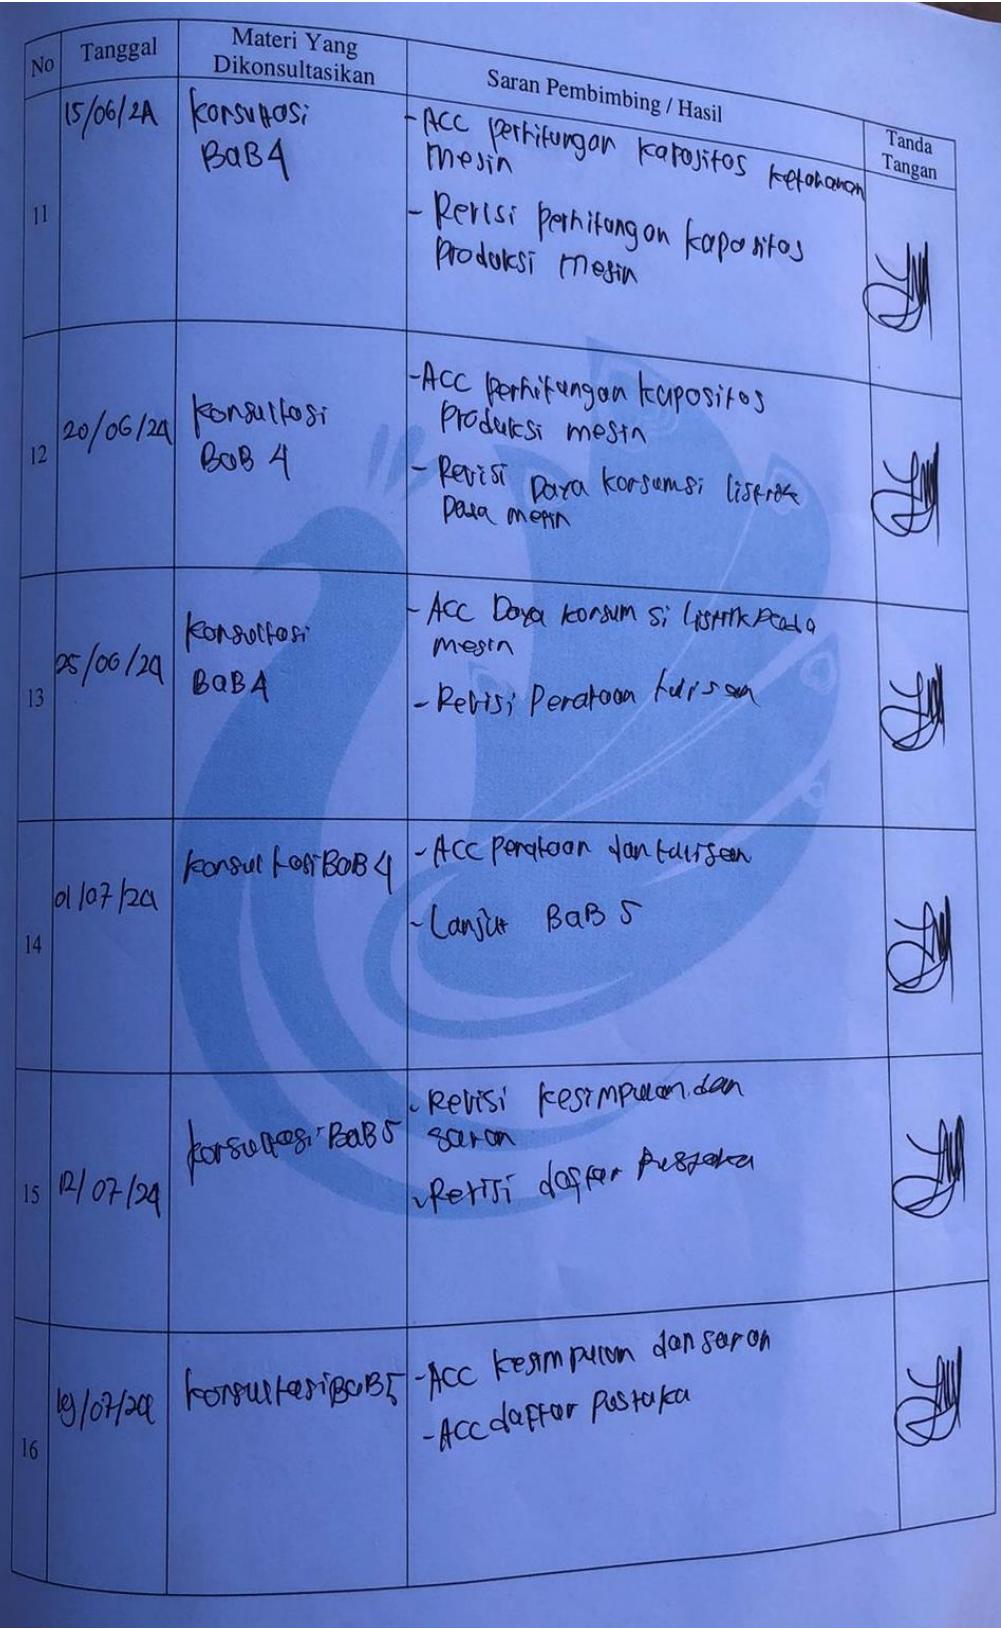 No Tanggal Materi Yang Dikonsultasikan Saran Pembimbing / Hasil Tanda Tangan
11 15/06/24 Konsultasi BaB 4
- ACC perhitungan kapasitas ketahanan
mesin
- Revisi perhitungan kapasitas
produksi mesin
12 20/06/24 konsultasi BaB 4
- ACC perhitungan kapasitas
produksi mesin
- Revisi Daya konsumsi listrik
pada mesin
13 25/06/24 konsultasi BaB 4
- ACC Daya konsumsi listrik pada
mesin
- Revisi Perataan tulisan
14 01/07/24 konsultasi BaB 4
- ACC perataan dan tulisan
- Lanjut BaB 5
15 12/07/24 konsultasi BaB 5
- Revisi kesimpulan dan
saran
- Revisi daftar Pustaka
16 /07/24 konsultasi BaB 5
- ACC kesimpulan dan saran
- ACC daftar pustaka